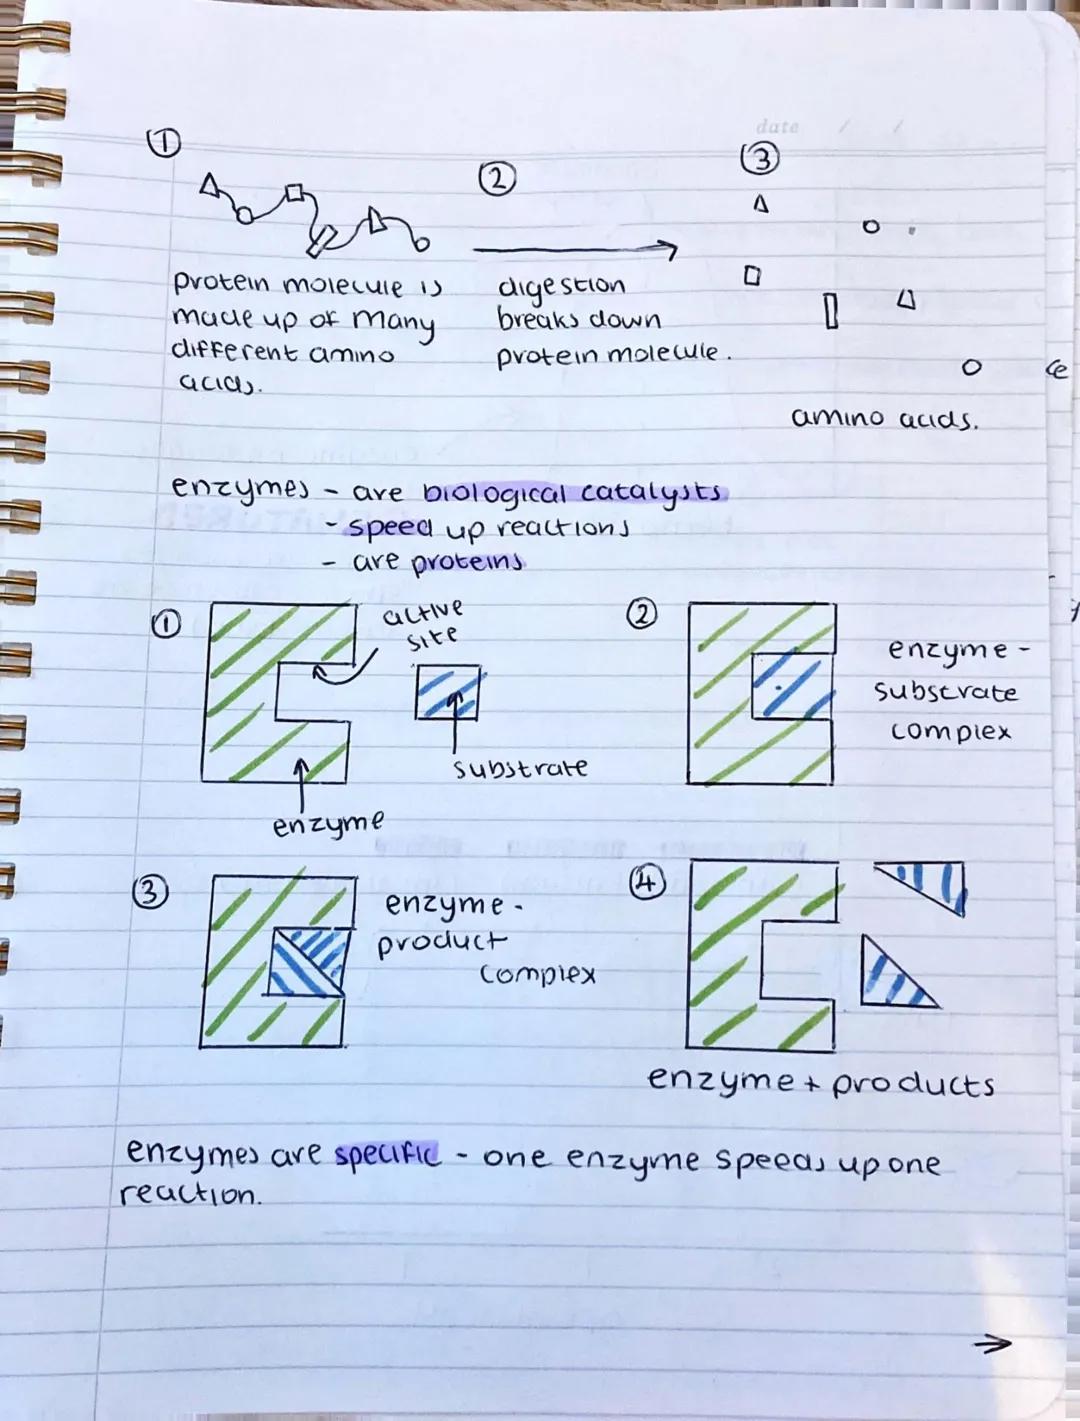 date / /
①
②
③
protein molecule is
made up of many
different amino
acids.
digestion
breaks down
protein molecule.
amino acids.
enzymes - are biological catalysts
- speed up reactions
- are proteins
①
active
site
substrate
enzyme
②
enzyme -
substrate
complex
③
enzyme -
product
complex
④
enzyme + products
enzymes are specific - one enzyme speeds up one
reaction.
→